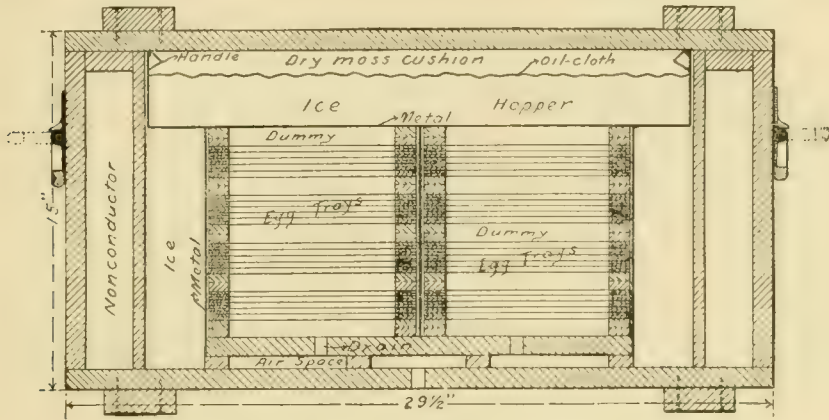 Handle Dry moss cushion Oil-cloth
Ice Hopper
Metal
Dummy
Egg Trays
Dummy
Egg Trays
Nonconductor
Ice
Metal
15"
Drain
Air Space
29½"